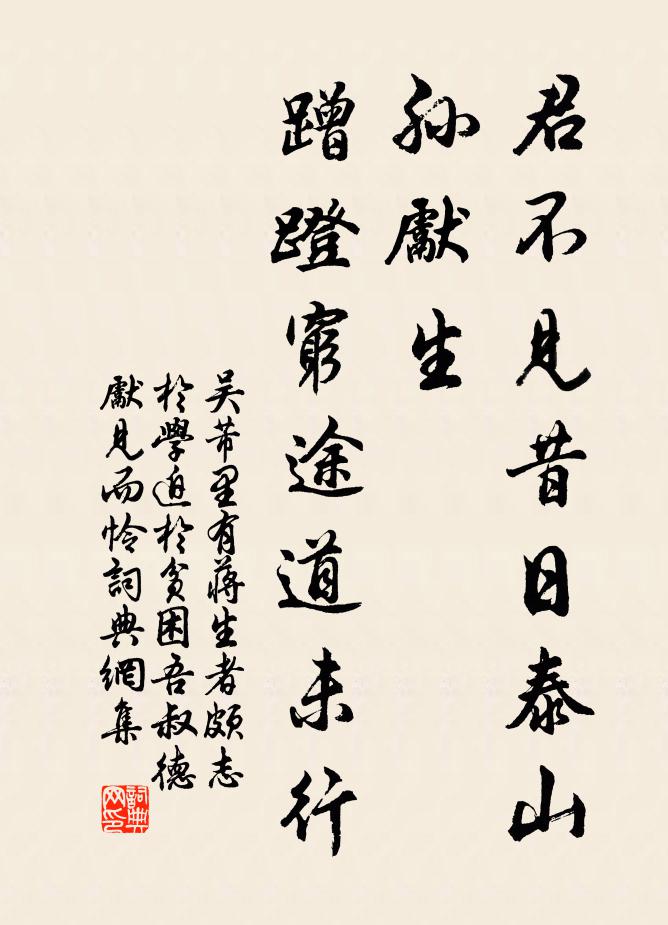 君不見昔日泰山
孫獻生
蹭蹬窮途道未行
吴芾里有蔣生者頗志
於學迫於貧困吾叔德
獻見而怜詞典網集
詞典网印